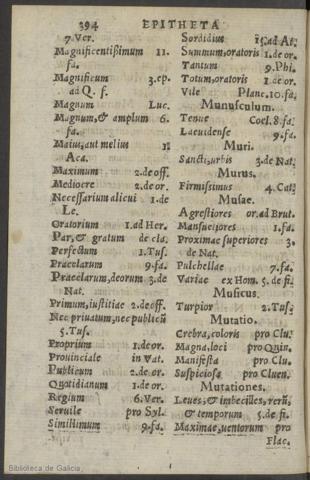 394 EPITHETA
7. Ver.
Magnificentißimum 11.
fa.
Magnificum 3. ep.
ad Q. f.
Magnum Luc.
Magnum, & amplum 6.
fa.
Maius, aut melius
Aca.
Maximum 2. de off.
Mediocre 2. de or.
Necessarium alicui 1. de
Le.
Oratorium 1. ad Her.
Par, & gratum de cla.
Perfectum 1. Tus.
Praeclarum 9. fa.
Praeclarum, deorum 3. de
Nat.
Primum, iustitiae 2. de off.
Nec priuatum, nec publicũ
5. Tus.
Proprium 1. de or.
Prouinciale in Vat.
Publicum 2. de or.
Quotidianum 1. de or.
Regium 6. Ver.
Seruile pro Syl.
Simillimum 9. fa.
Sordidius 15. ad At.
Summum, oratoris 1. de or.
Tantum 9. Phi.
Totum, oratoris 1. de or.
Vile Planc. 10. fa.
Munusculum.
Tenue Coel. 8. fa.
Laeuidense 9. fa.
Muri.
Sancti, urbis 3. de Nat.
Murus.
Firmissimus 4. Cat.
Musae.
Agrestiores or. ad Brut.
Mansuetiores 1. fa.
Proximae superiores 3.
de Nat.
Pulchellae 7. fa.
Variae ex Hom. 5. de fi.
Musicus.
Turpior 2. Tus.
Mutatio.
Crebra, coloris pro Clu.
Magna, loci pro Quin.
Manifesta pro Clu.
Suspiciosa pro Cluen.
Mutationes.
Leues, & imbecilles, rerũ,
& temporum 5. de fi.
Maximae, uentorum pro
Flac.
Biblioteca de Galicia